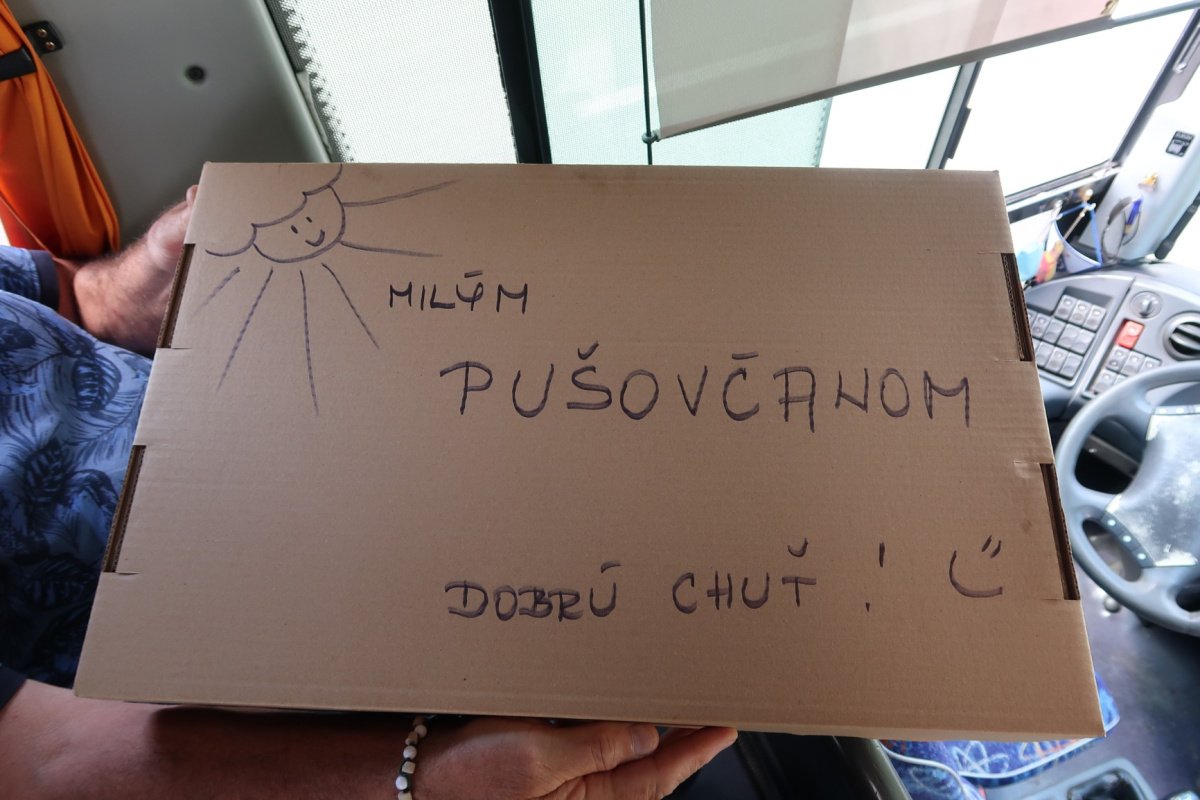 MILÝM
PUŠOVČANOM
DOBRÚ CHUŤ !